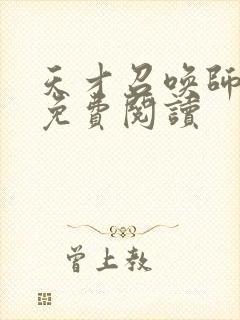 天才召唤師
免費閱讀
曾上教